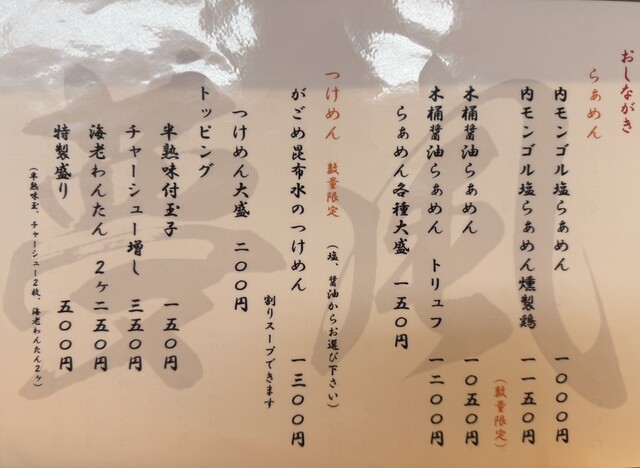 おしながき
らぁめん
内モンゴル塩らぁめん 一〇〇〇円
内モンゴル塩らぁめん燻製鶏 一一五〇円
(数量限定)
木桶醤油らぁめん 一〇五〇円
木桶醤油らぁめん トリュフ 一二〇〇円
らぁめん各種大盛 一五〇円
つけめん 数量限定 (塩、醤油からお選び下さい)
がごめ昆布水のつけめん 一三〇〇円
割りスープできます
つけめん大盛 二〇〇円
トッピング
半熟味付玉子 一五〇円
チャーシュー増し 三五〇円
海老わんたん 2ヶ 二五〇円
特製盛り 五〇〇円
(半熟味玉、チャーシュー2枚、海老わんたん2ヶ)
風
夢